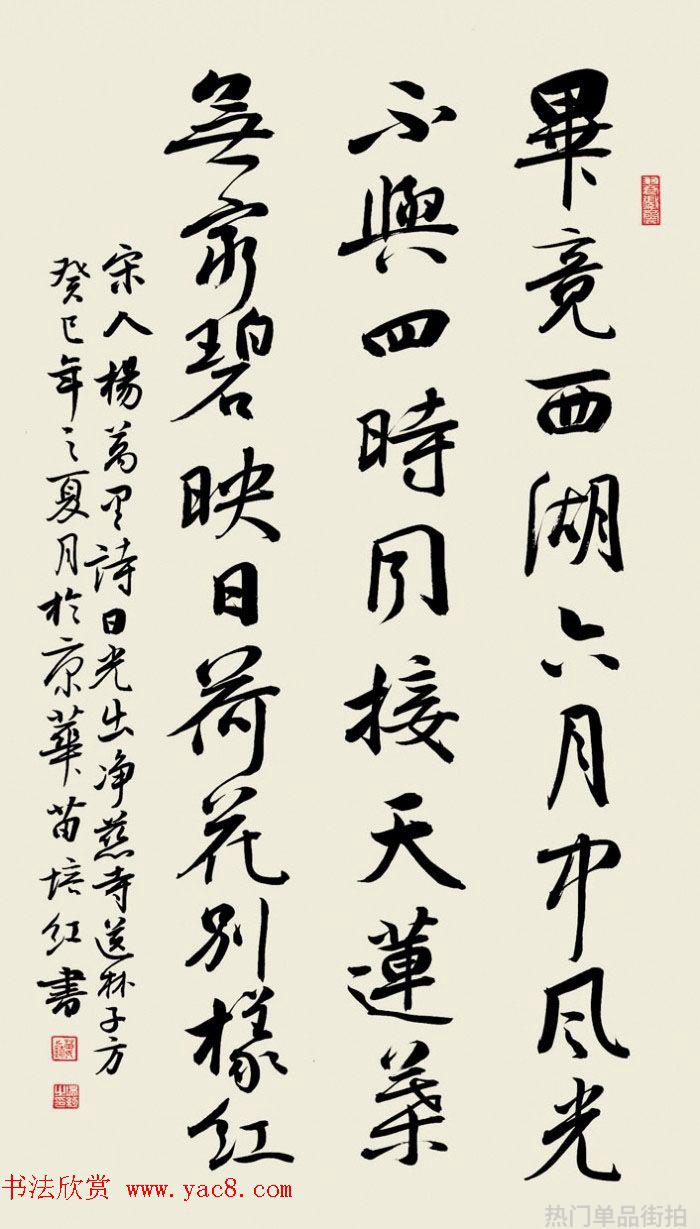 畢竟西湖六月中风光
不與四時同接天蓮葉
無窮碧映日荷花别樣紅
宋人楊萬里詩曰光出净慈寺送林子方
癸巳年之夏月於京華苗培红書
书法欣赏 www.yac8.com
热门单品街拍